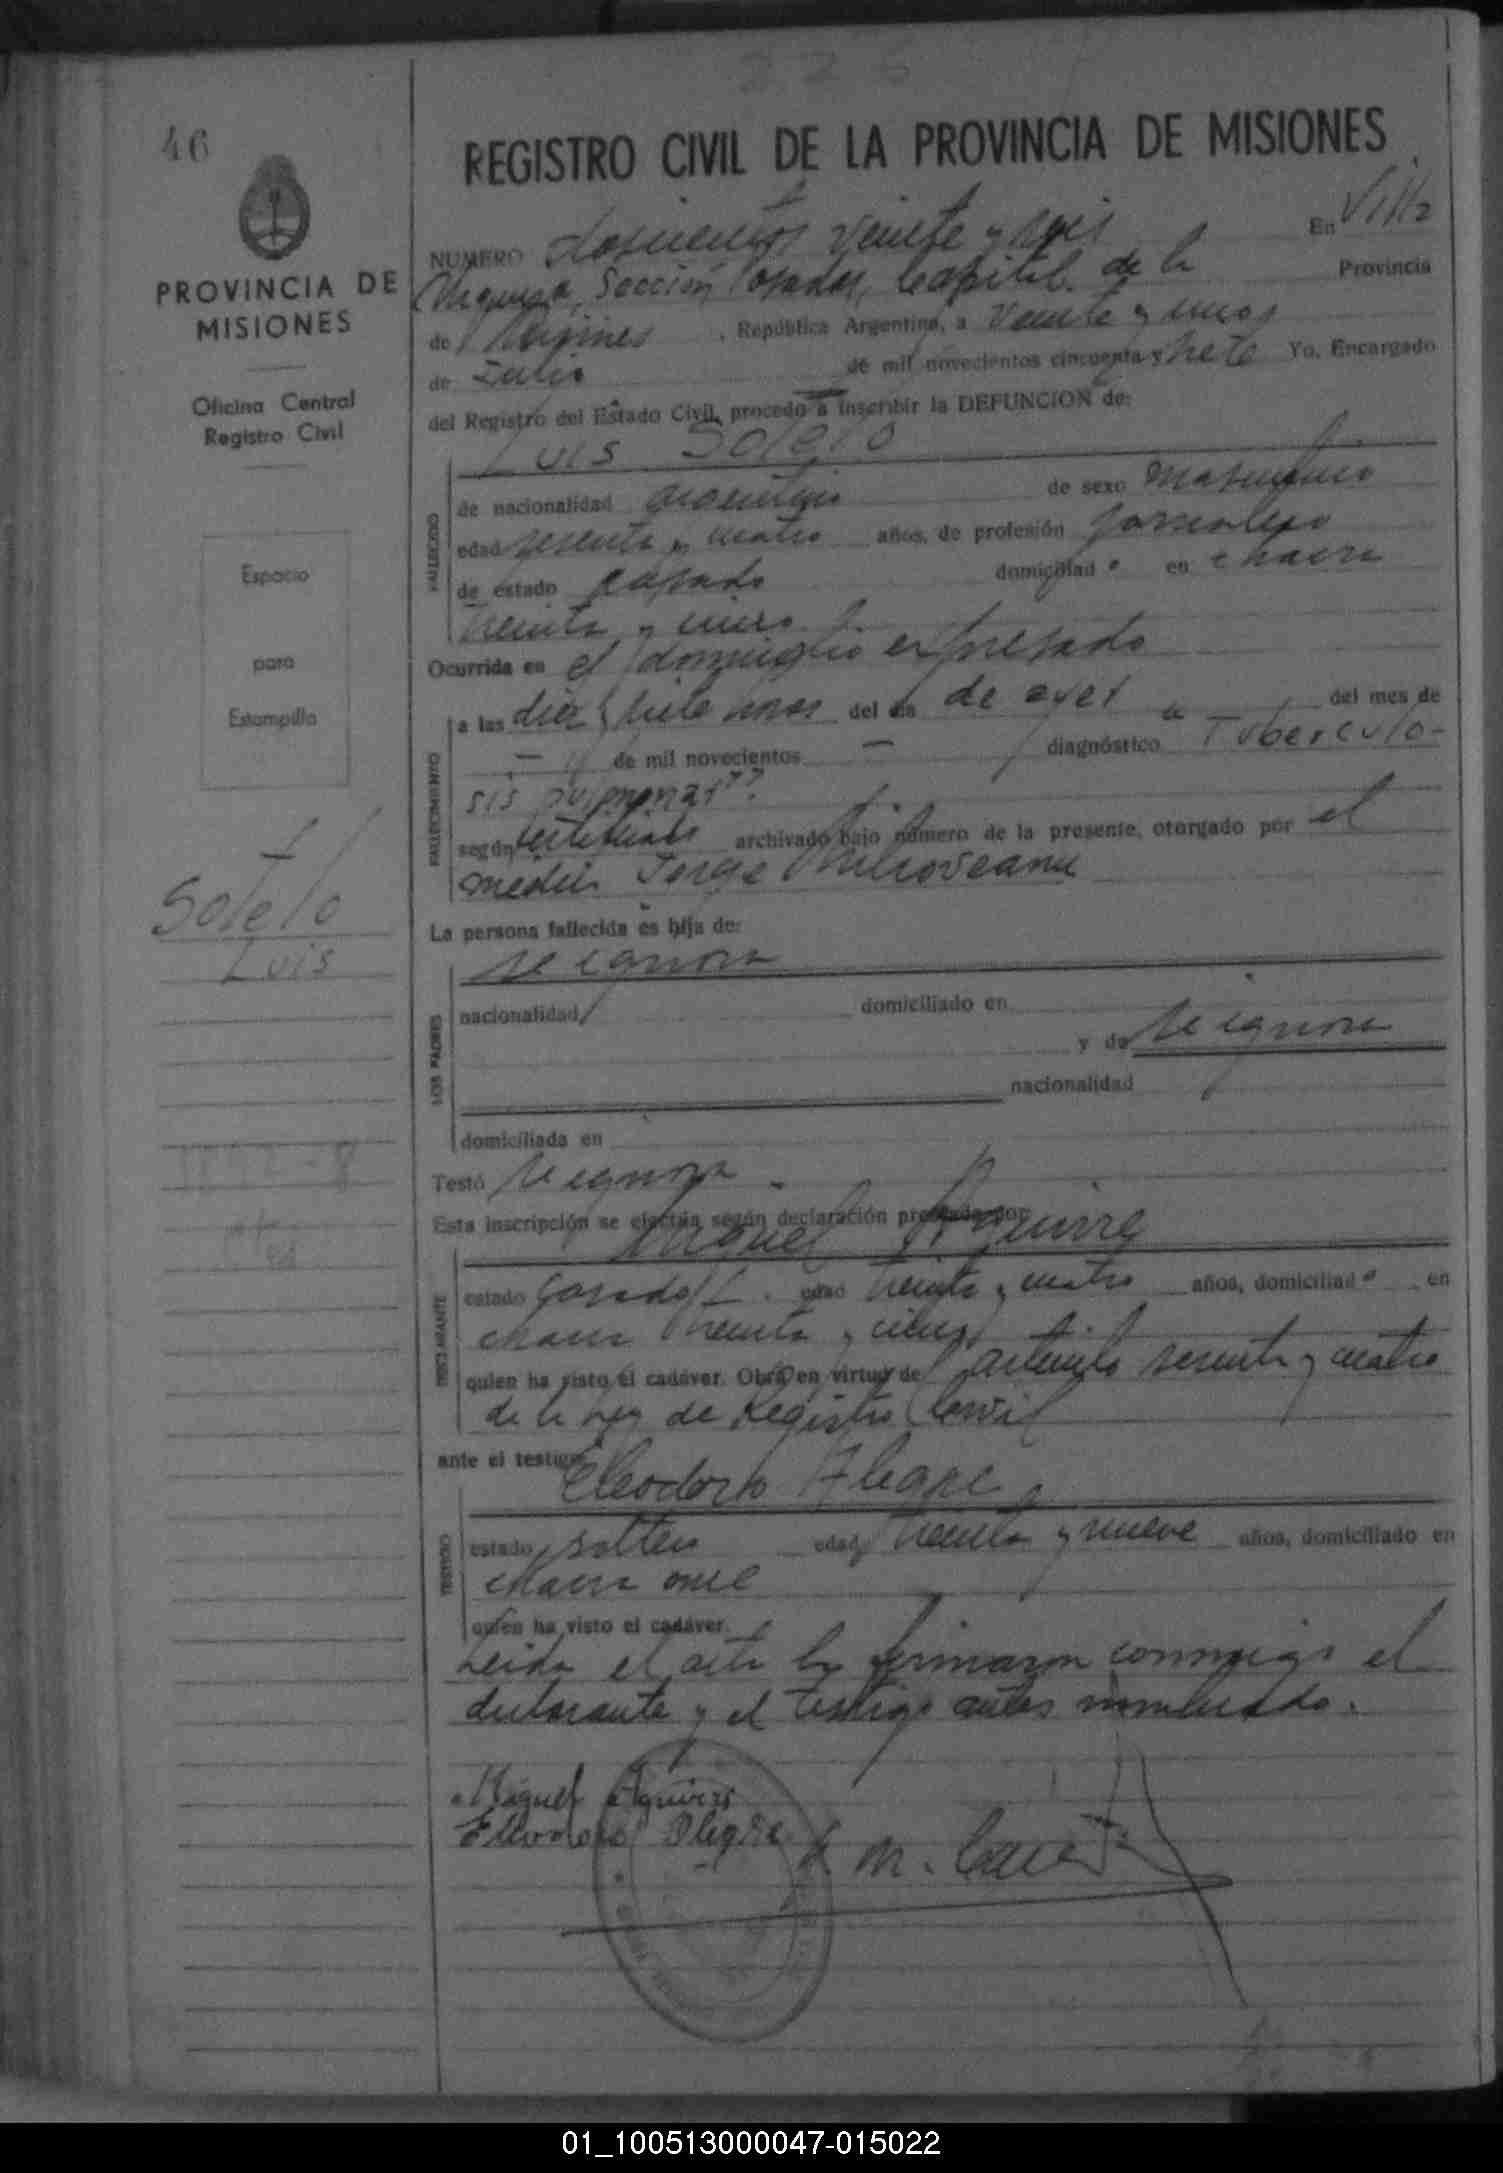 226
46
REGISTRO CIVIL DE LA PROVINCIA DE MISIONES
PROVINCIA DE
MISIONES
Oficina Central
Registro Civil
Espacio
para
Estampilla
Sotelo
Luis
NUMERO doscientos veinte y seis En Villa
Urquiza, Sección Posadas, Capital de la Provincia
de Misiones, República Argentina, a veinte y unos
de Julio de mil novecientos cincuenta y siete Yo, Encargado
del Registro del Estado Civil, procedo a inscribir la DEFUNCION de:
Luis Sotelo
FALLECIDO
de nacionalidad argentino de sexo masculino
edad sesenta y cuatro años, de profesión jornalero
de estado casado domiciliad o en chacra
treinta y cinco
Ocurrida en el domicilio expresado
FALLECIMIENTO
a las diez y siete horas del día de ayer de — del mes de
— de mil novecientos — diagnóstico Tubérculo-
sis pulmonar".
según certificado archivado bajo número de la presente, otorgado por el
médico Jorge
La persona fallecida es hija de:
LOS PADRES
se ignora
nacionalidad domiciliado en
y de se ignora
nacionalidad
domiciliada en
Testó se ignora.
Esta inscripción se efectúa según declaración prestada por:
Miguel Aguirre
DECLARANTE
estado casado edad treinta y cuatro años, domiciliad o en
chacra treinta y cinco
quien ha visto el cadáver. Obra en virtud del artículo sesenta y cuatro
de la Ley de Registro Civil
ante el testigo
Eleodoro Alegre
TESTIGO
estado soltero edad treinta y nueve años, domiciliado en
chacra once
quien ha visto el cadáver.
Leída el acta la firmaron conmigo el
declarante y el testigo antes nombrado.
Miguel Aguirre
Eleodoro Alegre
01_100513000047-015022